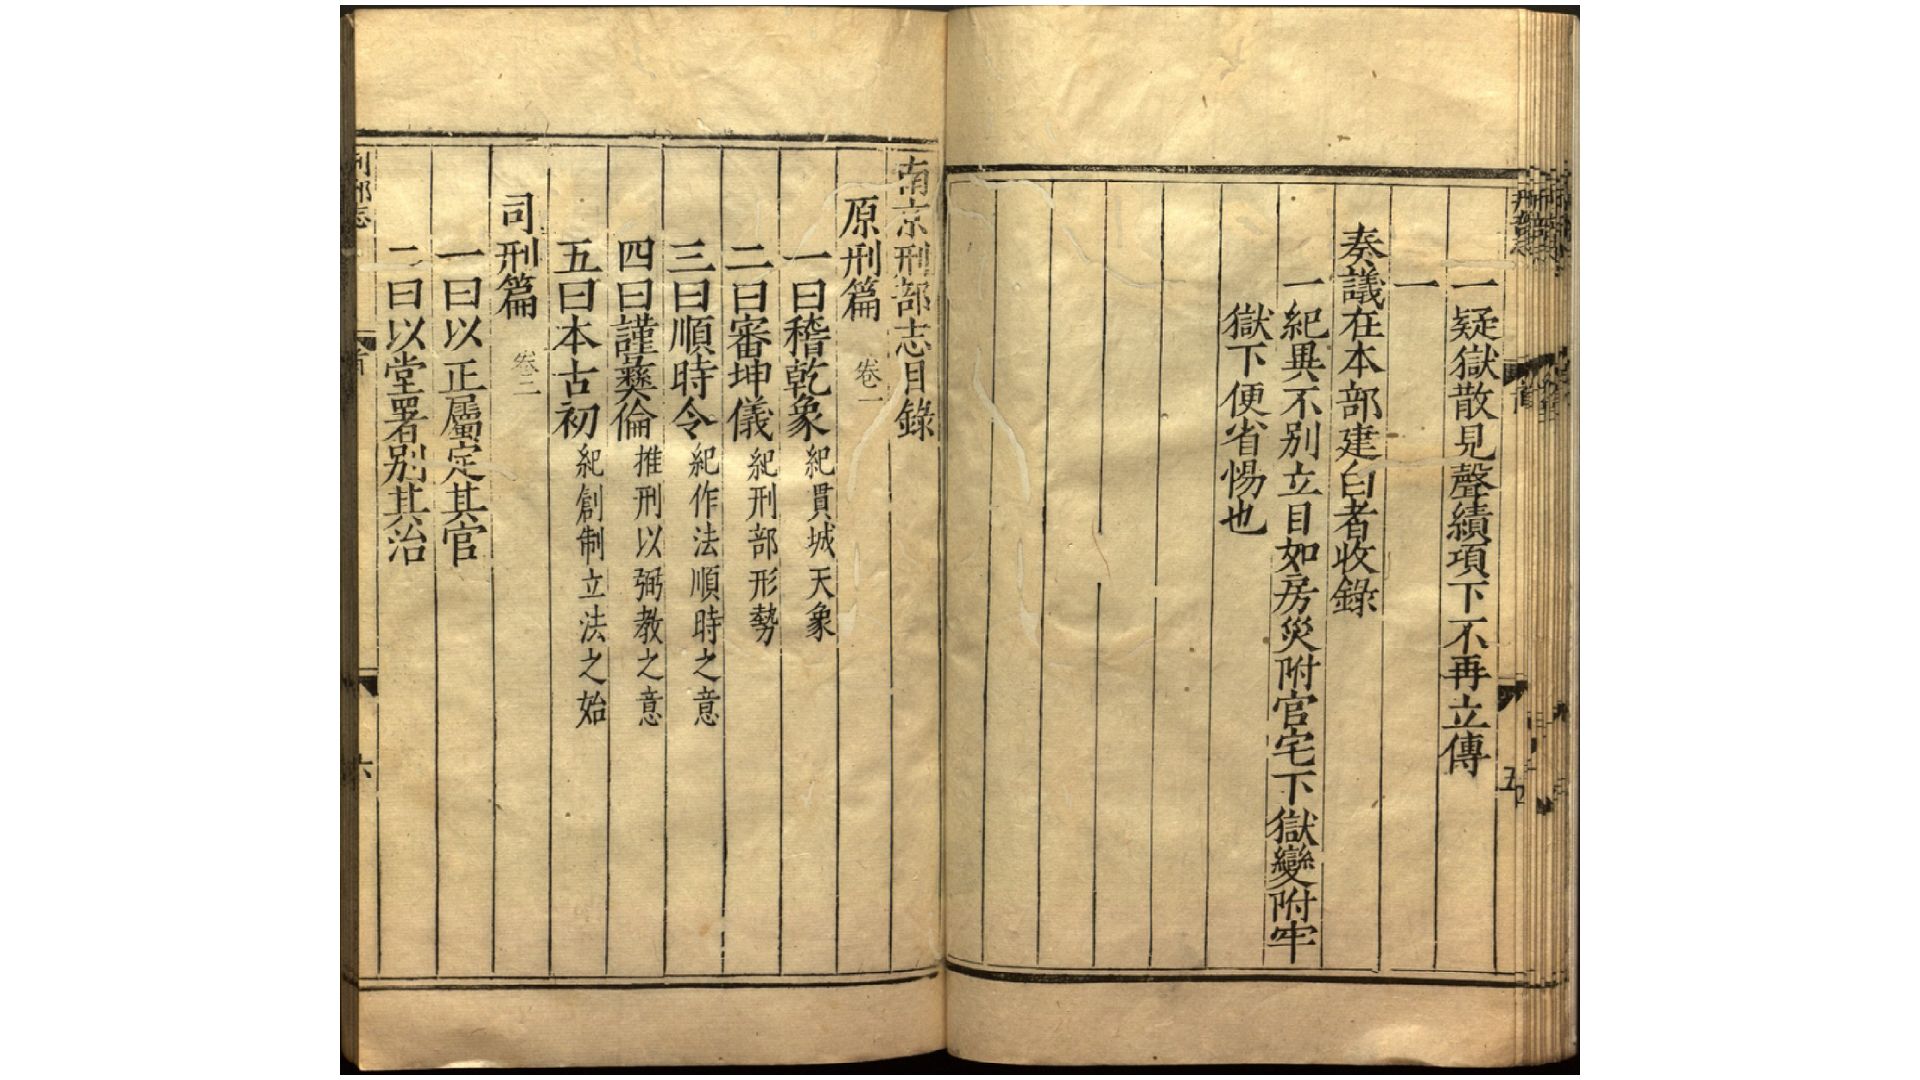 一疑獄散見聲績項下不再立傳
一
奏議在本部建白者收錄
一紀異不別立目如房災附官宅下獄變附牢
獄下便省惕也
南京刑部志目錄
原刑篇 卷一
一曰稽乾象 紀貫城天象
二曰審坤儀 紀刑部形勢
三曰順時令 紀作法順時之意
四曰謹彝倫 推刑以弼教之意
五曰本古初 紀創制立法之始
司刑篇 卷二
一曰以正屬定其官
二曰以堂署別其治
刑部志 首 六